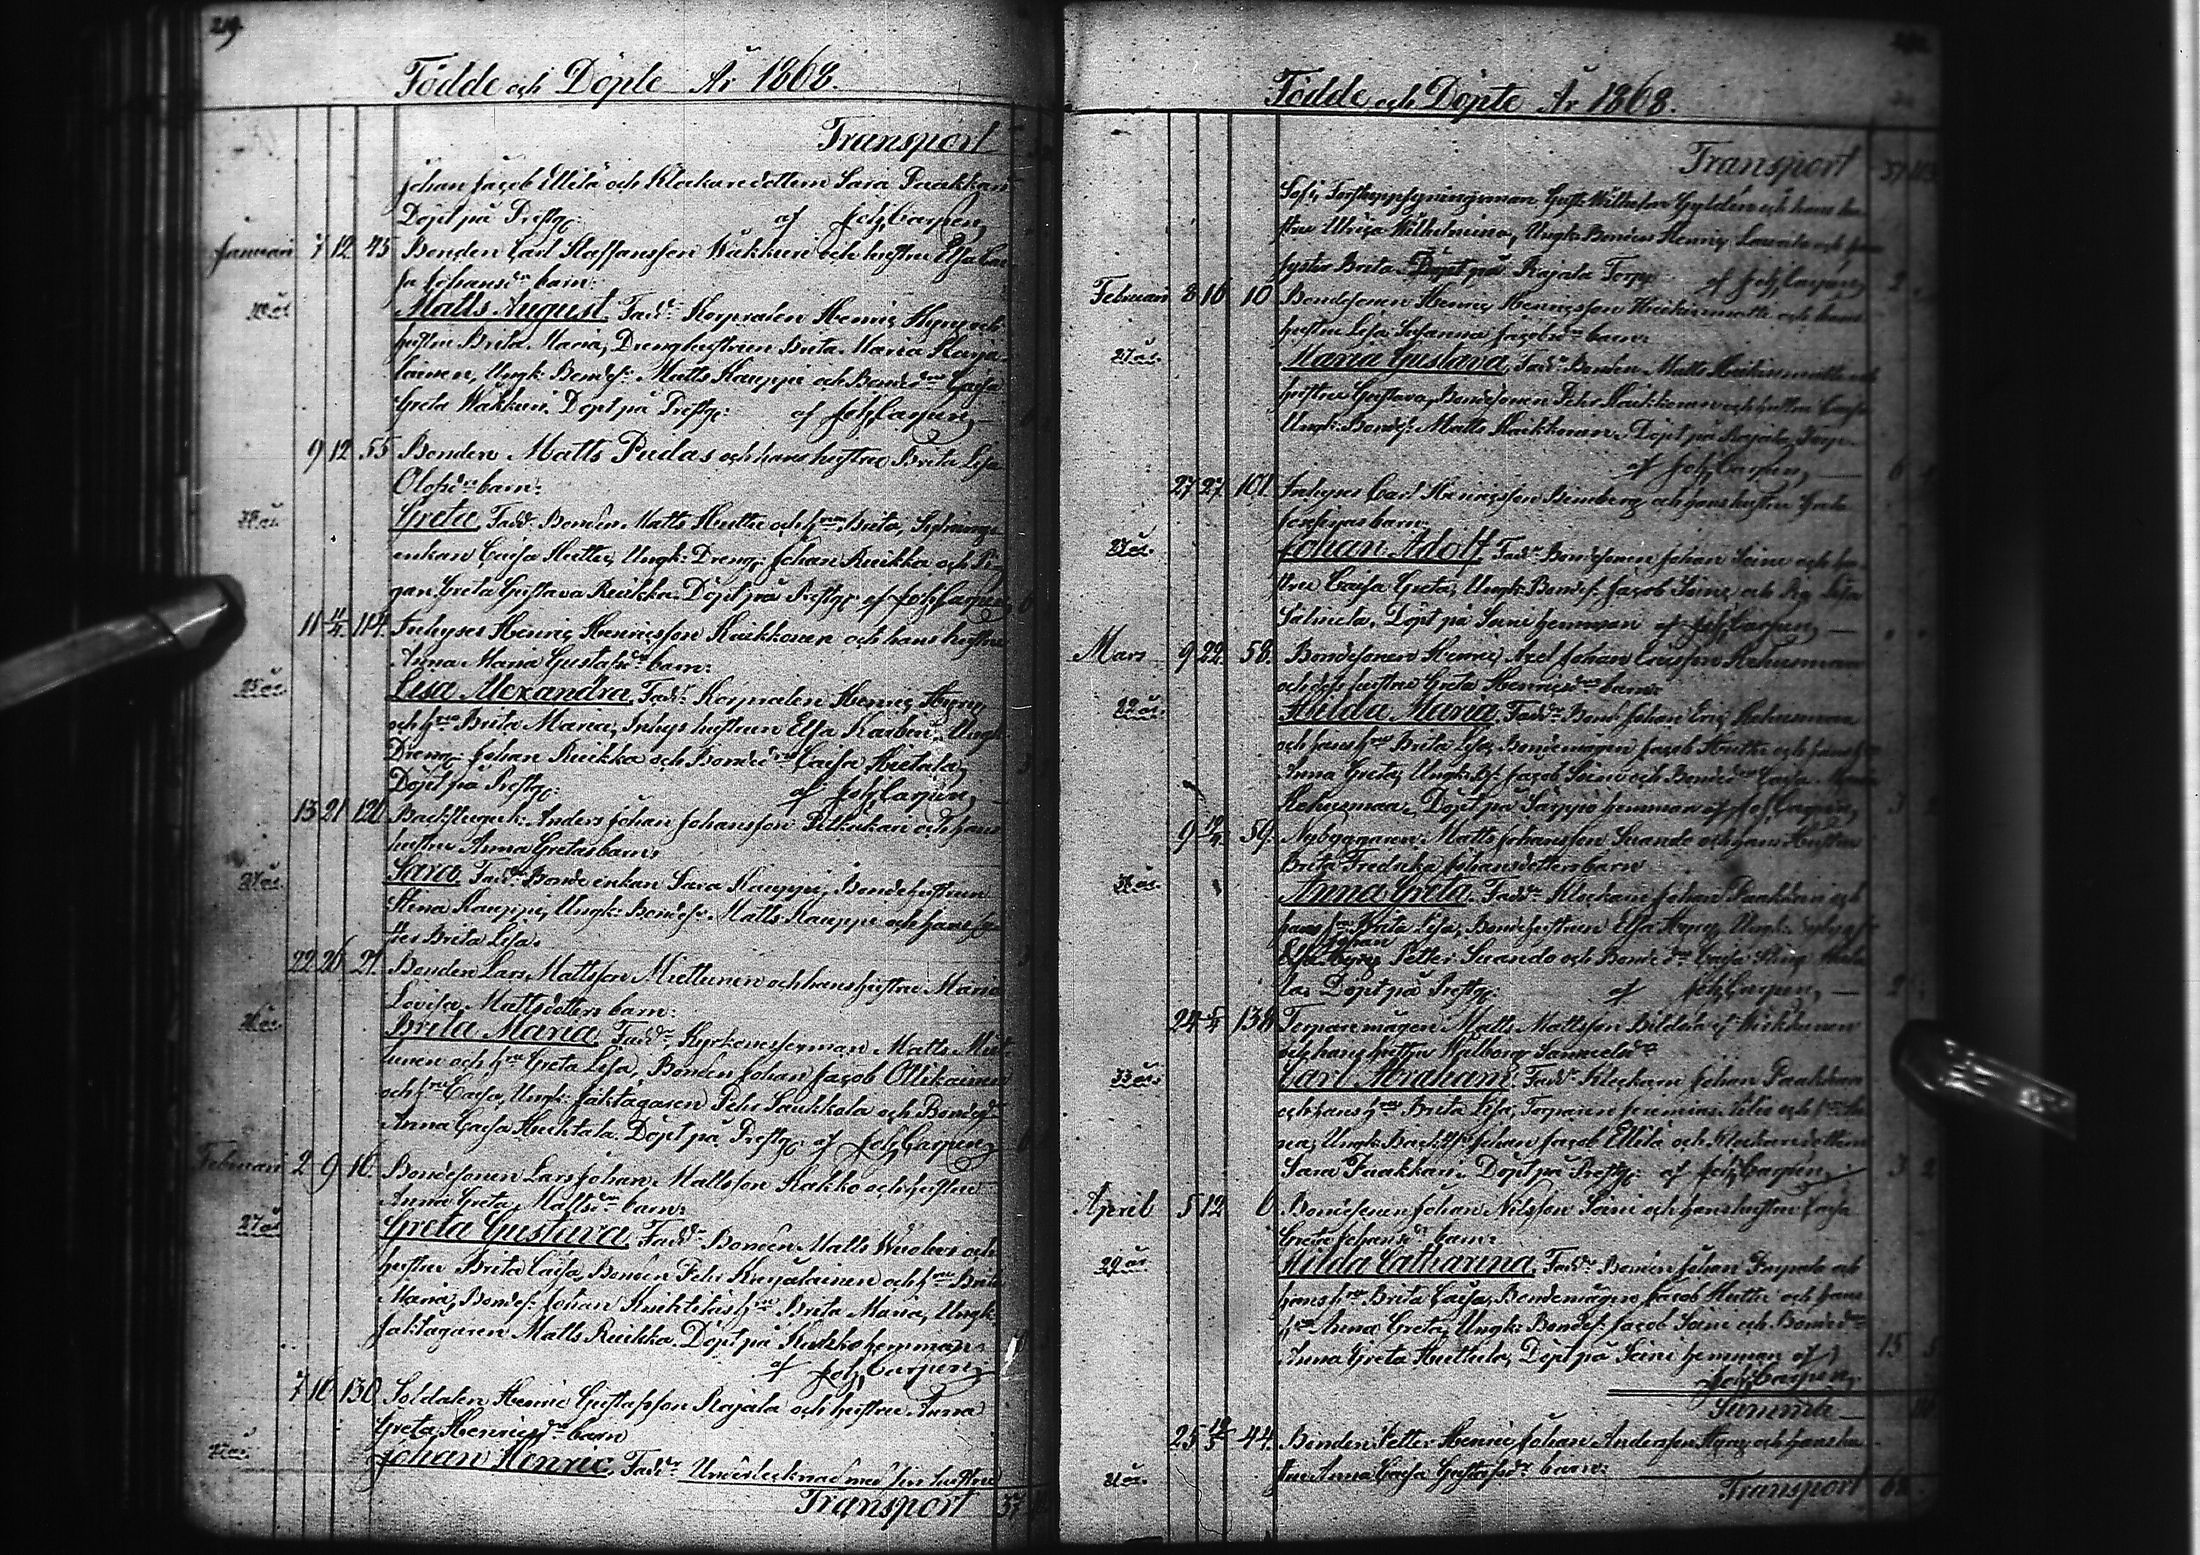 29
Födde och Döpte År 1868.
Transport
Johan Jacob Ellilä och Klockaredottern Sara Paakkari
Döpt på Prestg: af Joh Carpén,
Januari 7 12 45 Bonden Carl Staffansson Wäkkuri och hustru Elsa Cai-
sa Johansdr barn:
Matts August, Fadd: Korpralen Henric Hyry och
hustru Brita Maria, Dreng hustrun Brita Maria Karja-
lainen, Ungk: Bondes: Matts Kauppi och Bondedr Caisa
Greta Wäkkuri. Döpt på Prestg: af Joh Carpén,
9 12 55 Bonden Matts Pudas och hans hustru Brita Lisa
Olofsdr barn:
Greta, Fadd: Bonden Matts Huttu och hru Brita,
enkan Caisa Huttu, Ungk: Dreng: Johan Ruikka och Pi-
gan Greta Gustava Ruikka. Döpt på Prestg: af Joh Carpén,
11 114 Inhyses Henric Henricsson Kaikkonen och hans hustru
Anna Maria Gustafsdr barn:
25 år Lisa Alexandra, Fadd: Korpralen Henric Hyry
och hru Brita Maria, Inhys hustrun Elsa Karben, Ungk:
Dreng: Johan Ruikka och Bondedr Caisa Hietala,
Döpt på Prestg: af Joh Carpén,
13 21 120 Backstuguk: Anders Johan Johansson Pelkikari och hans
hustru Anna Gretas barn:
Sara, Fadd: Bonde enkan Sara Kauppi, Bondehustrun
Stina Kauppi, Ungk: Bondes: Matts Kauppi och hans sy-
ster Brita Lisa.
22 26 21 Bonden Lars Mattsson Miettunen och hans hustru Maria
Lovisa Mattsdotters barn:
Brita Maria, Fadd: Kyrkovesterman Matts Miet-
tunen och hru Greta Lisa, Bonden Johan Jacob Ollikainen
och hru Caisa, Ungk: Jaktägaren Pehr Saukkola och Bondedr
Anna Caisa Huhtala. Döpt på Prestg: af Joh Carpén,
Februari 2 9 16 Bondesonen Lars Johan Mattsson Kakko och hustru
Anna Greta Mattsdr barn:
27 år Greta Gustava, Fadd: Bonden Matts Wuolevi och
hustru Brita Caisa, Bonden Pehr Karjalainen och hru Brita
Maria, Bondes: Johan hru Brita Maria, Ungk:
Jaktägaren Matts Ruikka. Döpt på Kakko hemman
af Joh Carpén,
7 16 130 Soldaten Henric Gustafsson Rajala och hustru Anna
Greta Henricsdr barn
Johan Henric, Fadd: Undertecknad med sin hustru
Transport 37
Födde och Döpte År 1868.
Transport 37
Sofi, Forstuppsyningsman Gust: Wilhelm Gyldén och hans hu-
stru Ulrica Wilhelmina, Ungk: Bonden Henric Lavila och hans
syster Brita. Döpt på Rajala Torp: af Joh Carpén, 2
Februari 8 16 10 Bondesonen Henric Henricsson Heikinmatti och hans
hustru Lisa Susanna Jacobsdr barn:
27 år. Maria Gustava, Fadd: Bonden Matts Heikinmatti och
hustru Gustava, Bondesonen Pehr Kaikkonen och hustru Caisa
Ungk: Bondes: Matts Kaikkonen. Döpt på Rajala Torp:
af Joh Carpén, 6
27 27 101 Inhyses Carl Henricsson Simberg och hans hustru Greta
Josefinas barn:
Johan Adolf, Fadd: Bondesonen Johan Soini och hu-
stru Caisa Greta, Ungk: Bondes: Jacob Soini och Pig: Lisa
Salmela. Döpt på Soini hemman af Joh Carpén,
Mars 9 22 58. Bondesonen Henric Axel Johan Ericsson Kehusmaa
och dess hustru Greta Henricsdr barn:
22 år. Hulda Maria, Fadd: Bond: Johan Eric Kehusmaa
och hans hru Brita Lisa, Bondemågen Jacob Huttu och hans hru
Anna Greta, Ungk: Bs: Jacob Soini och Bondedr Caisa Maria
Kehusmaa. Döpt på Särppö hemman af Joh Carpén, 3 2
9 59. Nybyggaren Matts Johansson Suando och hans Hustru
Brita Fredrika Johansdotters barn
Anna Greta, Fadd: Klockare Johan Paakkari och
hans hru Brita Lisa, Bondehustrun Elsa Hyry, Ungk:
Johan Petter Suando och Bondedr Caisa Stina
la. Döpt på Prestg: af Joh Carpén, 2
24 138 Torparemågen Matts Mattsson Bildo el: Wirkkunen
och hans hustru Walborg Samuelsdr
33 år. Carl Abraham, Fadd: Klockare Johan Paakkari
och hans hru Brita Lisa, Torparen Jeremias Vilio och hru
, Ungk: Backsts: Johan Jacob Ellilä och Klockaredottern
Sara Paakkari. Döpt på Prestg: af Joh Carpén, 3 2
April 5 12 6 Bondesonen Johan Nilsson Soini och hans hustru Caisa
Greta Johansdr barn:
29 år Hilda Catharina, Fadd: Bonden Johan Parpala och
hans hru Brita Caisa, Bondemågen Jacob Huttu och hans
hru Anna Greta, Ungk: Bondes: Jacob Soini och Bondedr
Anna Greta Huttula, Döpt på Soini hemman af 15 5
Joh Carpén,
Summa
25 44. Bonden Petter Henric Johan Andersson Hyry och hans hu-
stru Anna Caisa Gustafsdr barn:
Transport 62